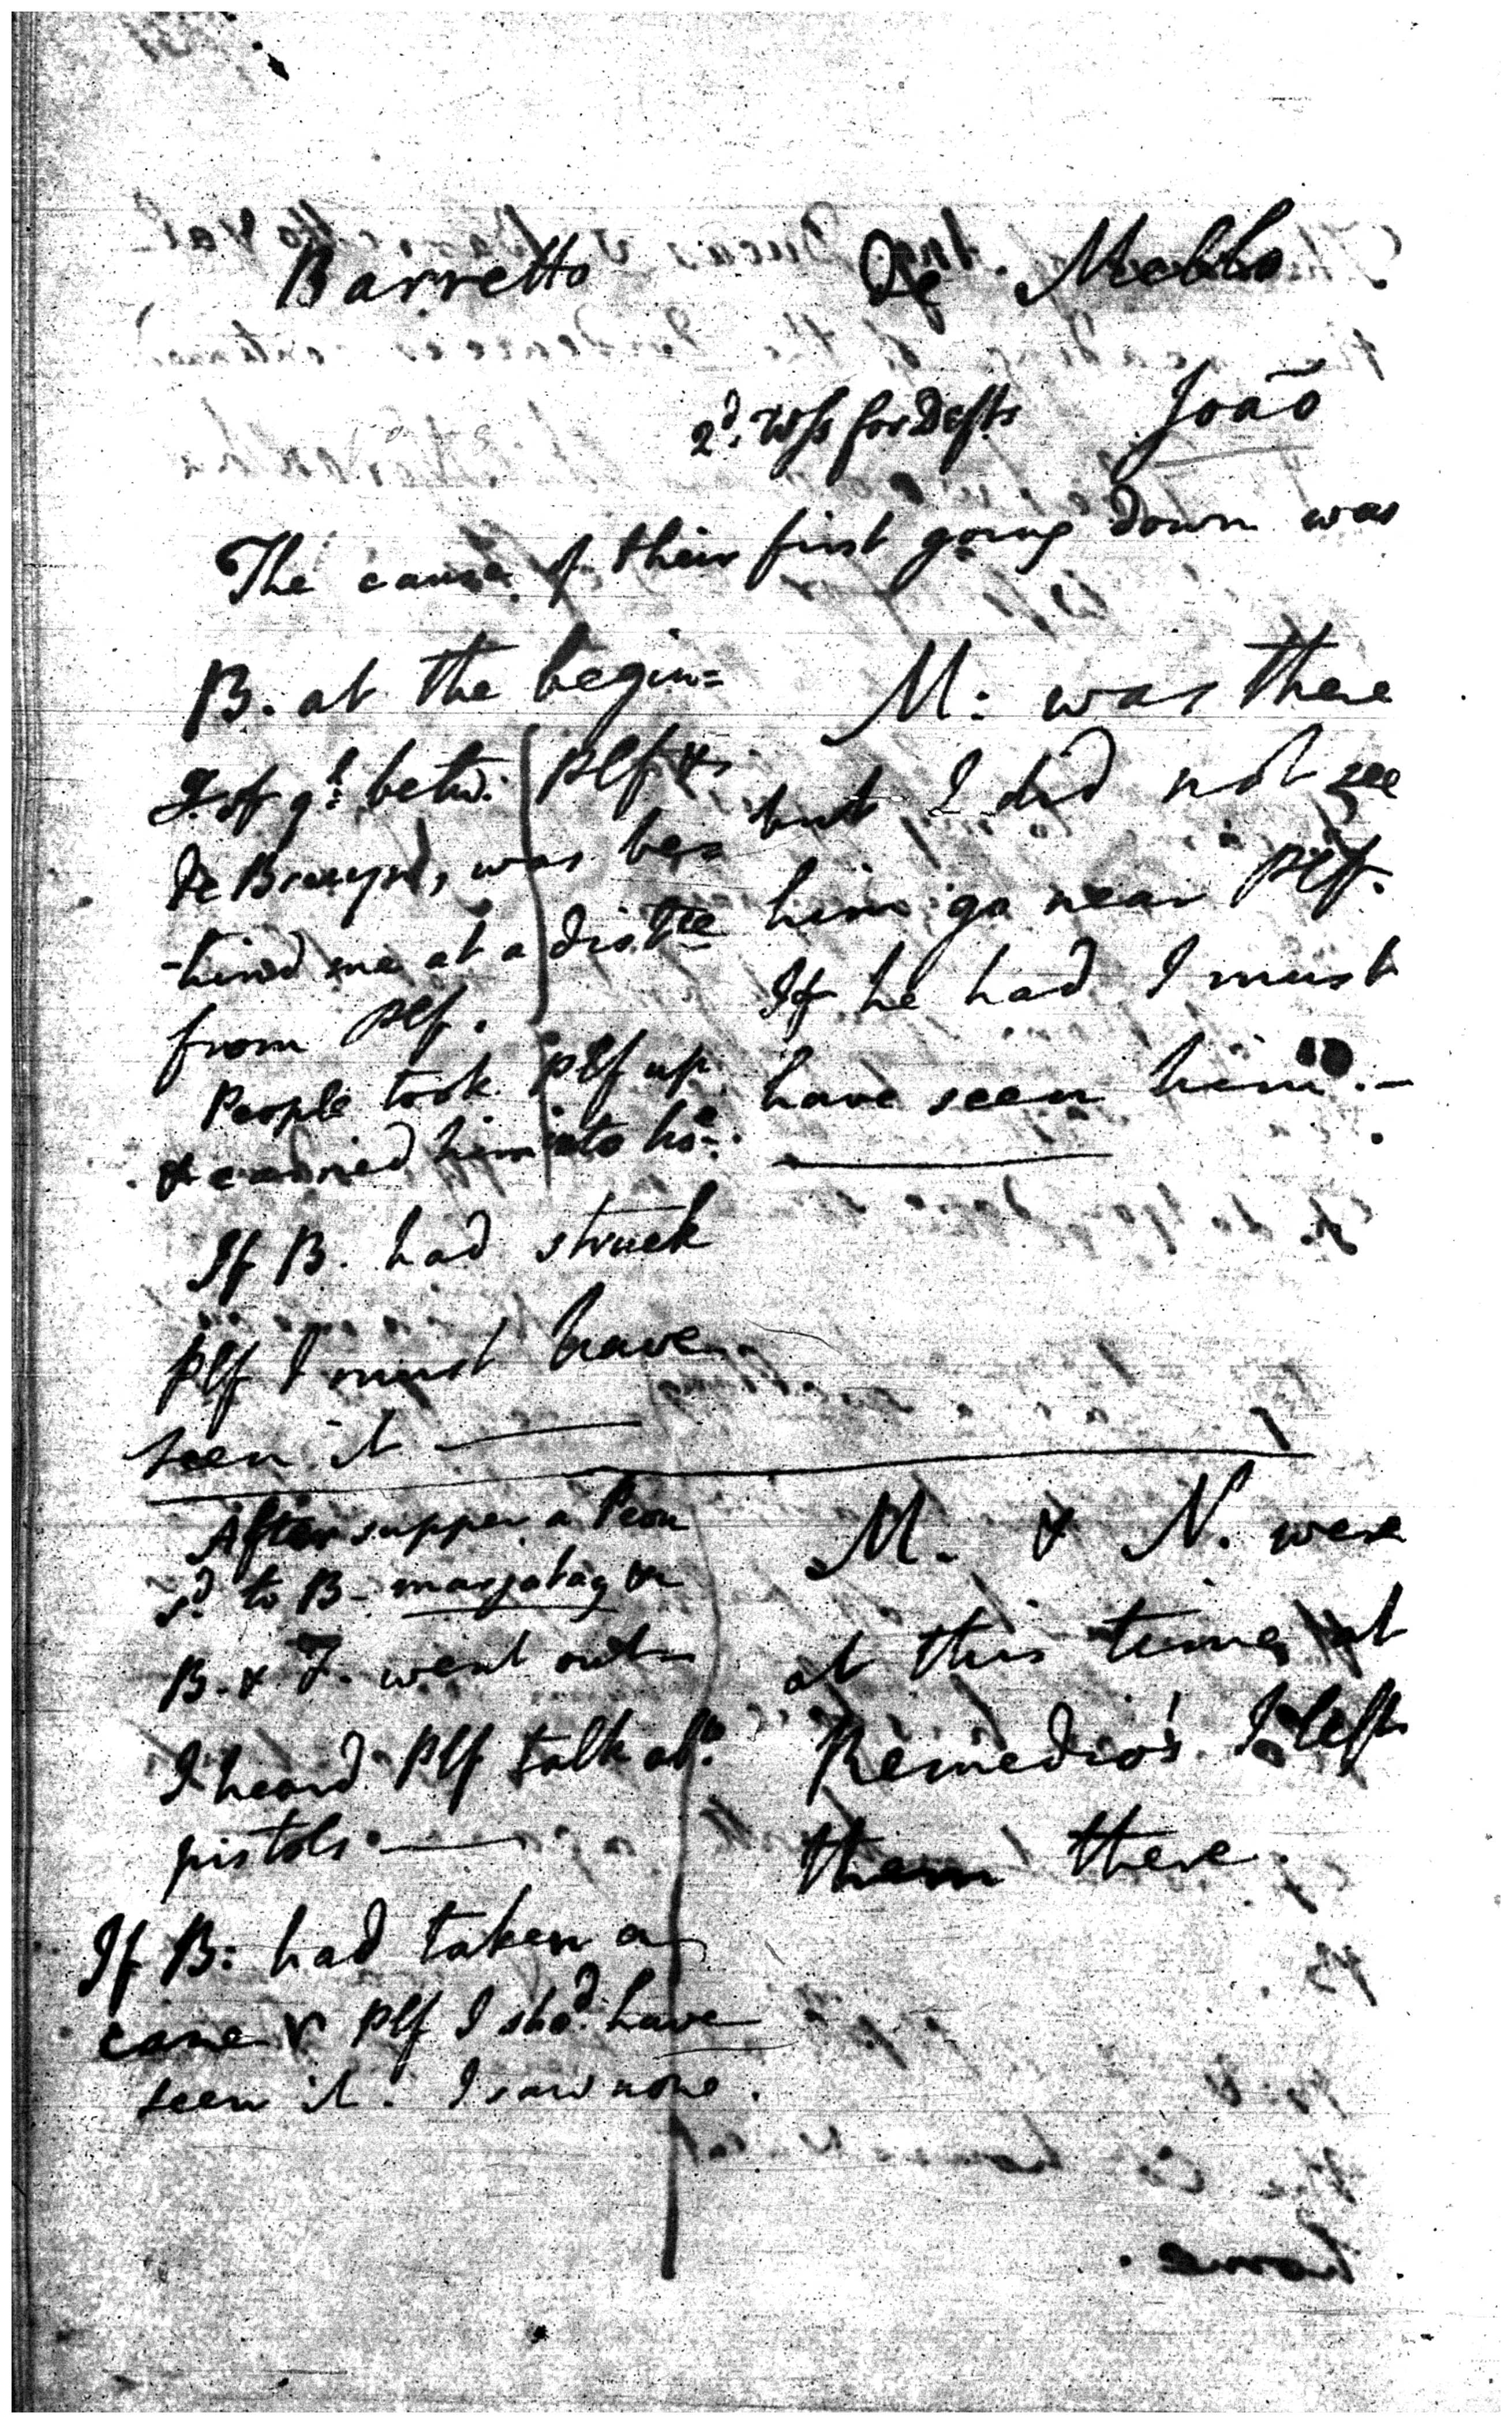 Barretto De Mello
2d. Wss for Defts João
The cause of their first going down was
B. at the begin=
g. of ql. betw. Plf &
De Bruyn, was be=
-hind me at a distce
from Plf.
People took Plf up
& carried him into hse.
If B. had struck
Plf I must have
seen it
M: was there
but I did not see
him go near Plff.
If he had I must
have seen him.-
After supper a Peon
sd. to B.
B. & F. went out
I heard Plf talk abt.
pistols
If B: had taken a
cane & Plf I shod. have
seen it. I saw none.
M. & N. were
at this time at
Remedio's I left
them there.